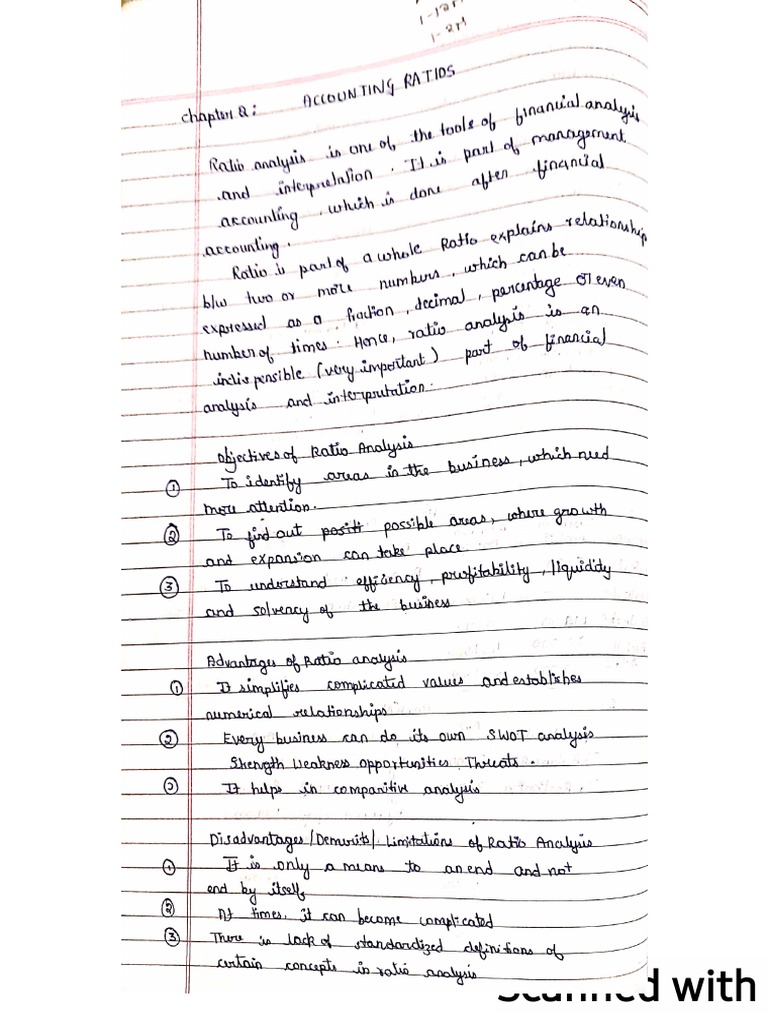 1-12M
1-2M
Chapter 2: ACCOUNTING RATIOS
Ratio analysis is one of the tools of financial analysis
and interpretation. It is part of management
accounting, which is done after financial
accounting.
Ratio is part of a whole Ratio explains relationship
b/w two or more numbers, which can be
expressed as a fraction, decimal, percentage or even
number of times. Hence, ratio analysis is an
indispensible (very important) part of financial
analysis and interpretation.
Objectives of Ratio Analysis
① To identify areas in the business, which need
more attention.
② To find out possible areas, where growth
and expansion can take place
③ To understand efficiency, profitability, liquidity
and solvency of the business
Advantages of Ratio analysis
① It simplifies complicated values and establishes
numerical relationships
② Every business can do its own SWOT analysis
Strength Weakness opportunities Threats.
③ It helps in comparitive analysis
Disadvantages/Demerits/Limitations of Ratio Analysis
① It is only a means to an end and not
end by itself
② At times, it can become complicated
③ There is lack of standardized definitions of
certain concepts in ratio analysis
Scanned with